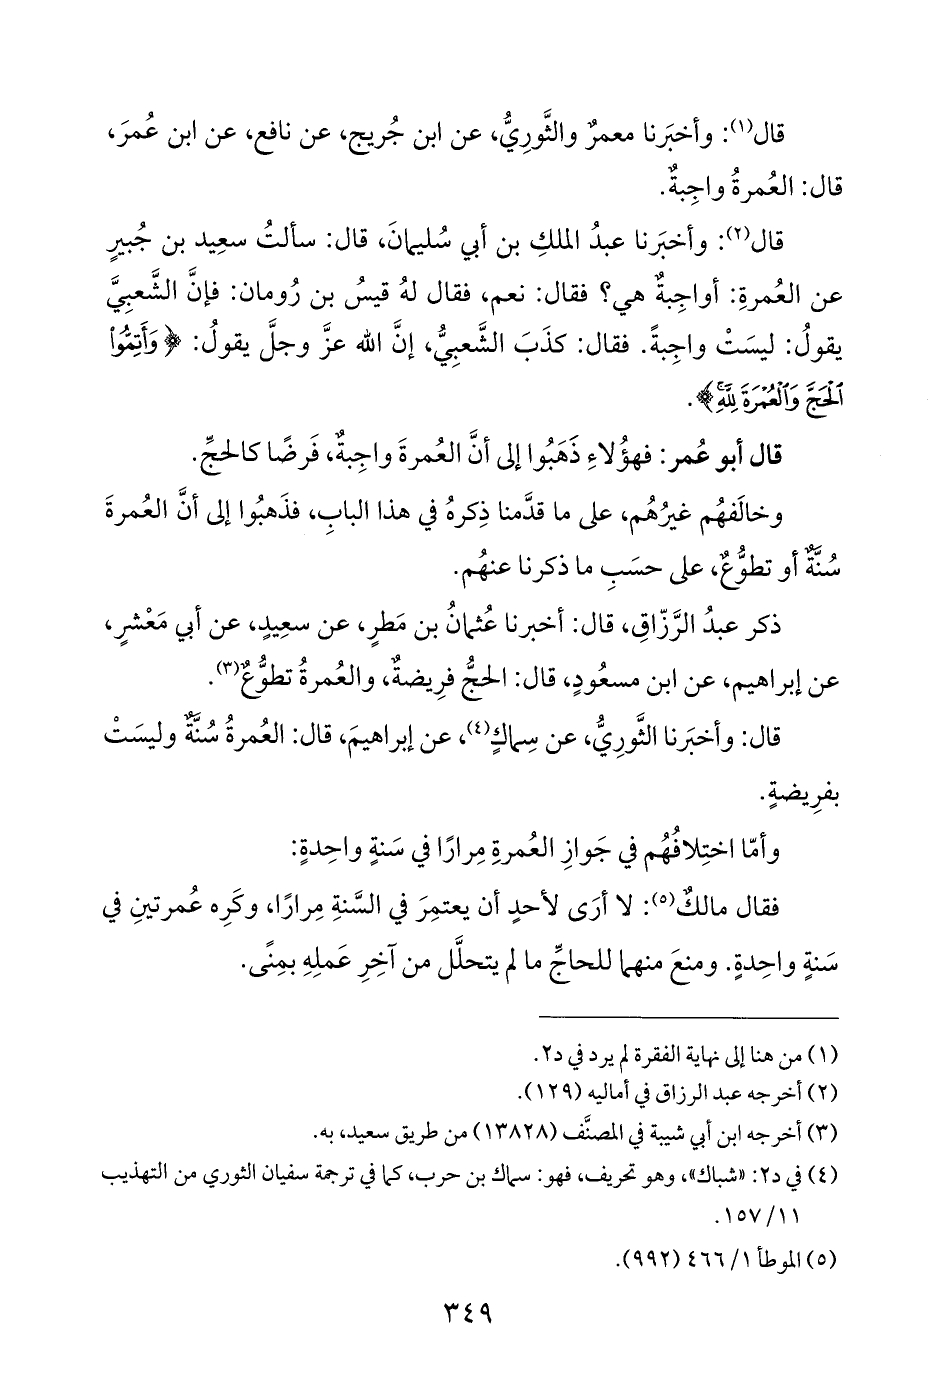 قال(١): وأخبَرنا معمرٌ والثَّورِيُّ، عن ابن جُريج، عن نافع، عن ابن عُمرَ،
قال: العُمرةُ واجِبةٌ.
قال(٢): وأخبَرنا عبدُ الملكِ بن أبي سُليمانَ، قال: سألتُ سعِيد بن جُبيرٍ
عن العُمرةِ: أواجِبةٌ هي؟ فقال: نعم، فقال لهُ قيسُ بن رُومان: فإنَّ الشَّعبِيَّ
يقولُ: ليسَتْ واجِبةً. فقال: كذَبَ الشَّعبِيُّ، إنَّ الله عزَّ وجلَّ يقولُ: ﴿وَأَتِمُّوا۟
ٱلْحَجَّ وَٱلْعُمْرَةَ لِلَّهِۚ﴾.
قال أبو عُمر: فهؤُلاءِ ذَهَبُوا إلى أنَّ العُمرةَ واجِبةٌ، فَرضًا كالحجِّ.
وخالَفهُم غيرُهُم، على ما قدَّمنا ذِكرهُ في هذا البابِ، فذهبُوا إلى أنَّ العُمرةَ
سُنَّةٌ أو تطوُّعٌ، على حسَبِ ما ذكرنا عنهُم.
ذكر عبدُ الرَّزّاقِ، قال: أخبرنا عُثمانُ بن مَطرٍ، عن سعِيدٍ، عن أبي مَعْشرٍ،
عن إبراهيم، عن ابن مسعُودٍ، قال: الحجُّ فرِيضةٌ، والعُمرةُ تطوُّعٌ(٣).
قال: وأخبَرنا الثَّورِيُّ، عن سِماكٍ(٤)، عن إبراهيمَ، قال: العُمرةُ سُنَّةٌ وليسَتْ
بفرِيضةٍ.
وأمّا اختِلافُهُم في جَوازِ العُمرةِ مِرارًا في سَنةٍ واحِدةٍ:
فقال مالكٌ(٥): لا أرَى لأحدٍ أن يعتمِرَ في السَّنةِ مِرارًا، وكَرِه عُمرتينِ في
سَنةٍ واحِدةٍ. ومنعَ منهما للحاجِّ ما لم يتحلَّل من آخِرِ عَملِهِ بمِنًى.
(١) من هنا إلى نهاية الفقرة لم يرد في د٢.
(٢) أخرجه عبد الرزاق في أماليه (١٢٩).
(٣) أخرجه ابن أبي شيبة في المصنَّف (١٣٨٢٨) من طريق سعيد، به.
(٤) في د٢: «شباك»، وهو تحريف، فهو: سماك بن حرب، كما في ترجمة سفيان الثوري من التهذيب
١١/ ١٥٧.
(٥) الموطأ ١/ ٤٦٦ (٩٩٢).
٣٤٩